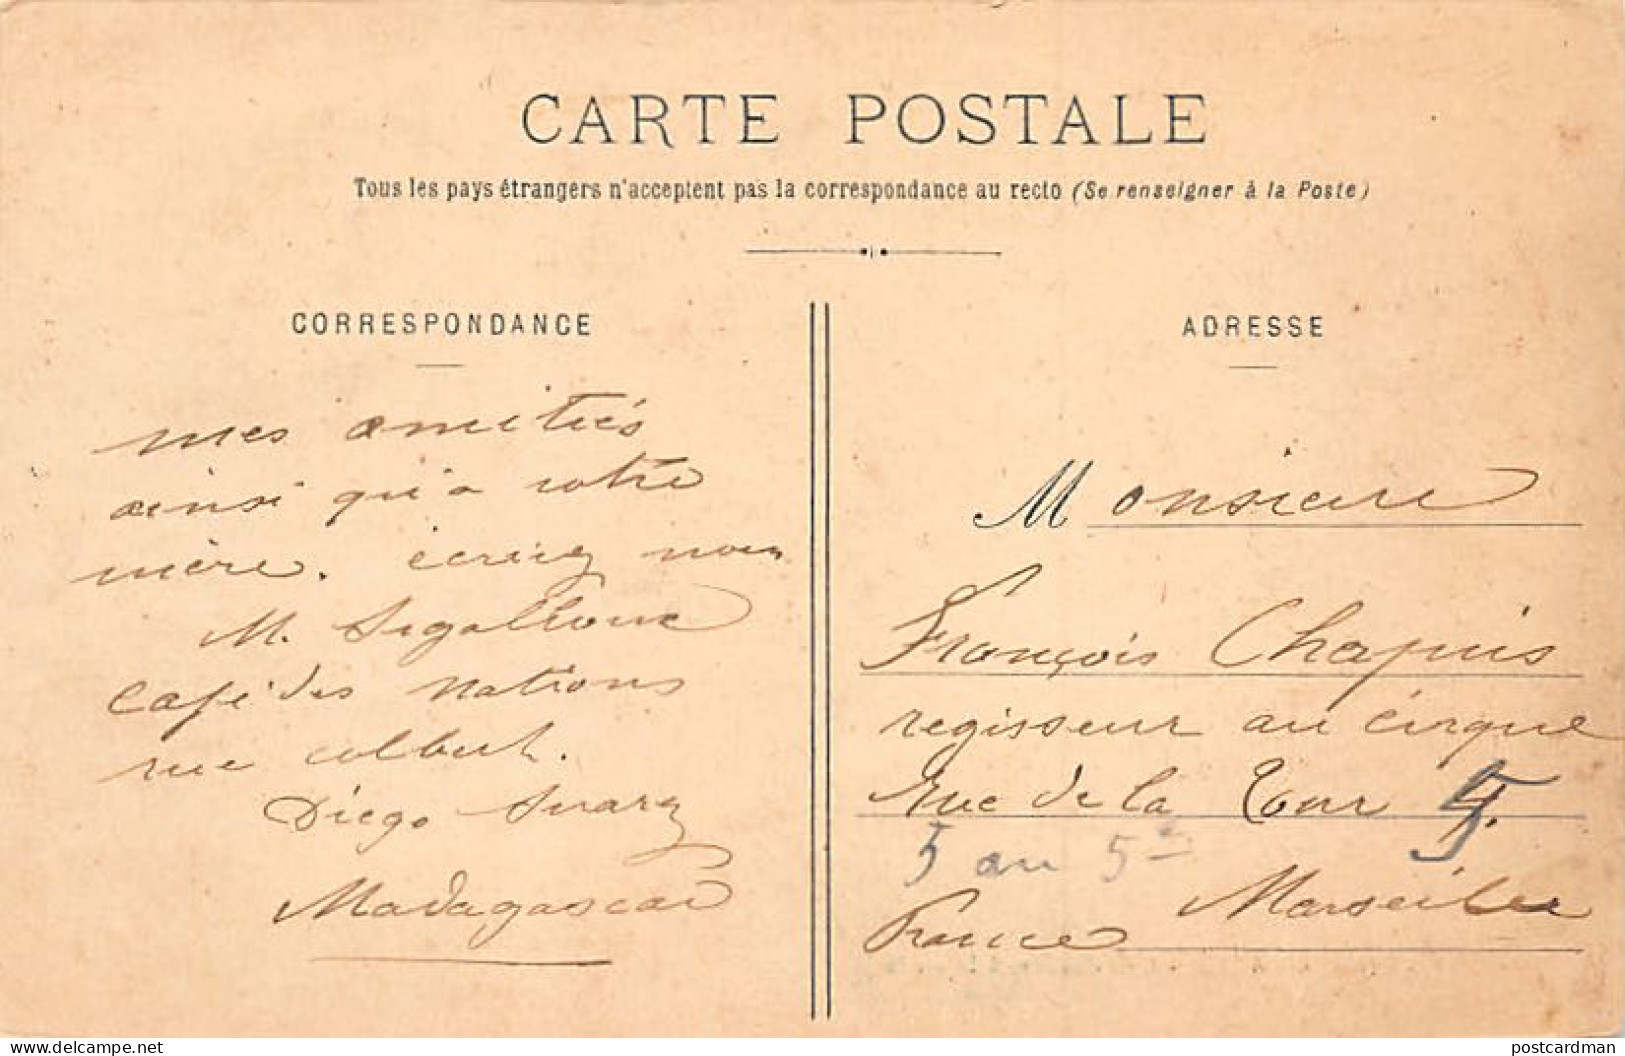 CARTE POSTALE
Tous les pays étrangers n'acceptent pas la correspondance au recto (Se renseigner à la Poste)
CORRESPONDANCE
mes amitiés
ainsi qu'a votre
mère. écrivez nous
M.
café des nations
rue colbert.
Diego Suarez
Madagascar
ADRESSE
Monsieur
François Chapuis
regisseur au cirque
Rue de la Tour
5 au 5e
Marseille
France
delcampe.net
postcardman